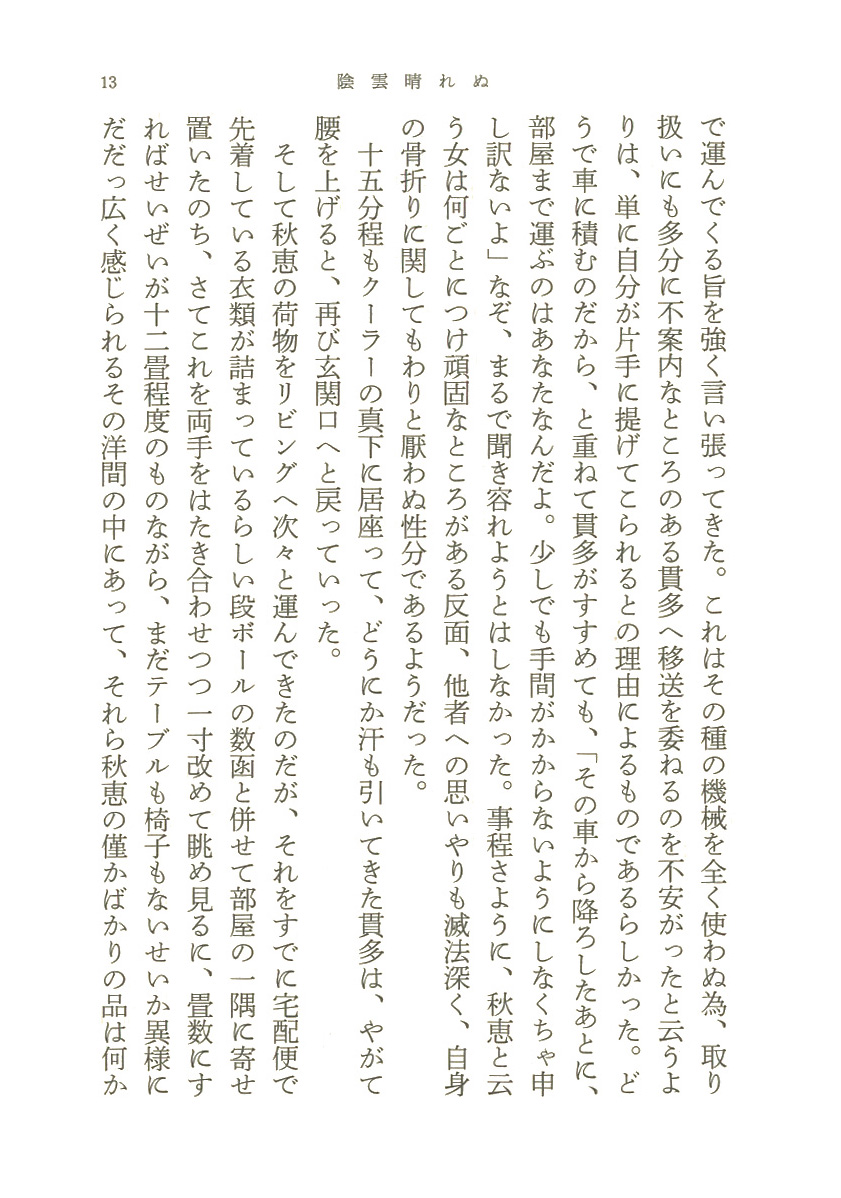 13
陰雲晴れぬ
で運んでくる旨を強く言い張ってきた。これはその種の機械を全く使わぬ為、取り
扱いにも多分に不案内なところのある貫多へ移送を委ねるのを不安がったと云うよ
りは、単に自分が片手に提げてこられるとの理由によるものであるらしかった。ど
うで車に積むのだから、と重ねて貫多がすすめても、「その車から降ろしたあとに、
部屋まで運ぶのはあなたなんだよ。少しでも手間がかからないようにしなくちゃ申
し訳ないよ」なぞ、まるで聞き容れようとはしなかった。事程さように、秋恵と云
う女は何ごとにつけ頑固なところがある反面、他者への思いやりも滅法深く、自身
の骨折りに関してもわりと厭わぬ性分であるようだった。
十五分程もクーラーの真下に居座って、どうにか汗も引いてきた貫多は、やがて
腰を上げると、再び玄関口へと戻っていった。
そして秋恵の荷物をリビングへ次々と運んできたのだが、それをすでに宅配便で
先着している衣類が詰まっているらしい段ボールの数函と併せて部屋の一隅に寄せ
置いたのち、さてこれを両手をはたき合わせつつ一寸改めて眺め見るに、畳数にす
ればせいぜいが十二畳程度のものながら、まだテーブルも椅子もないせいか異様に
だだっ広く感じられるその洋間の中にあって、それら秋恵の僅かばかりの品は何か